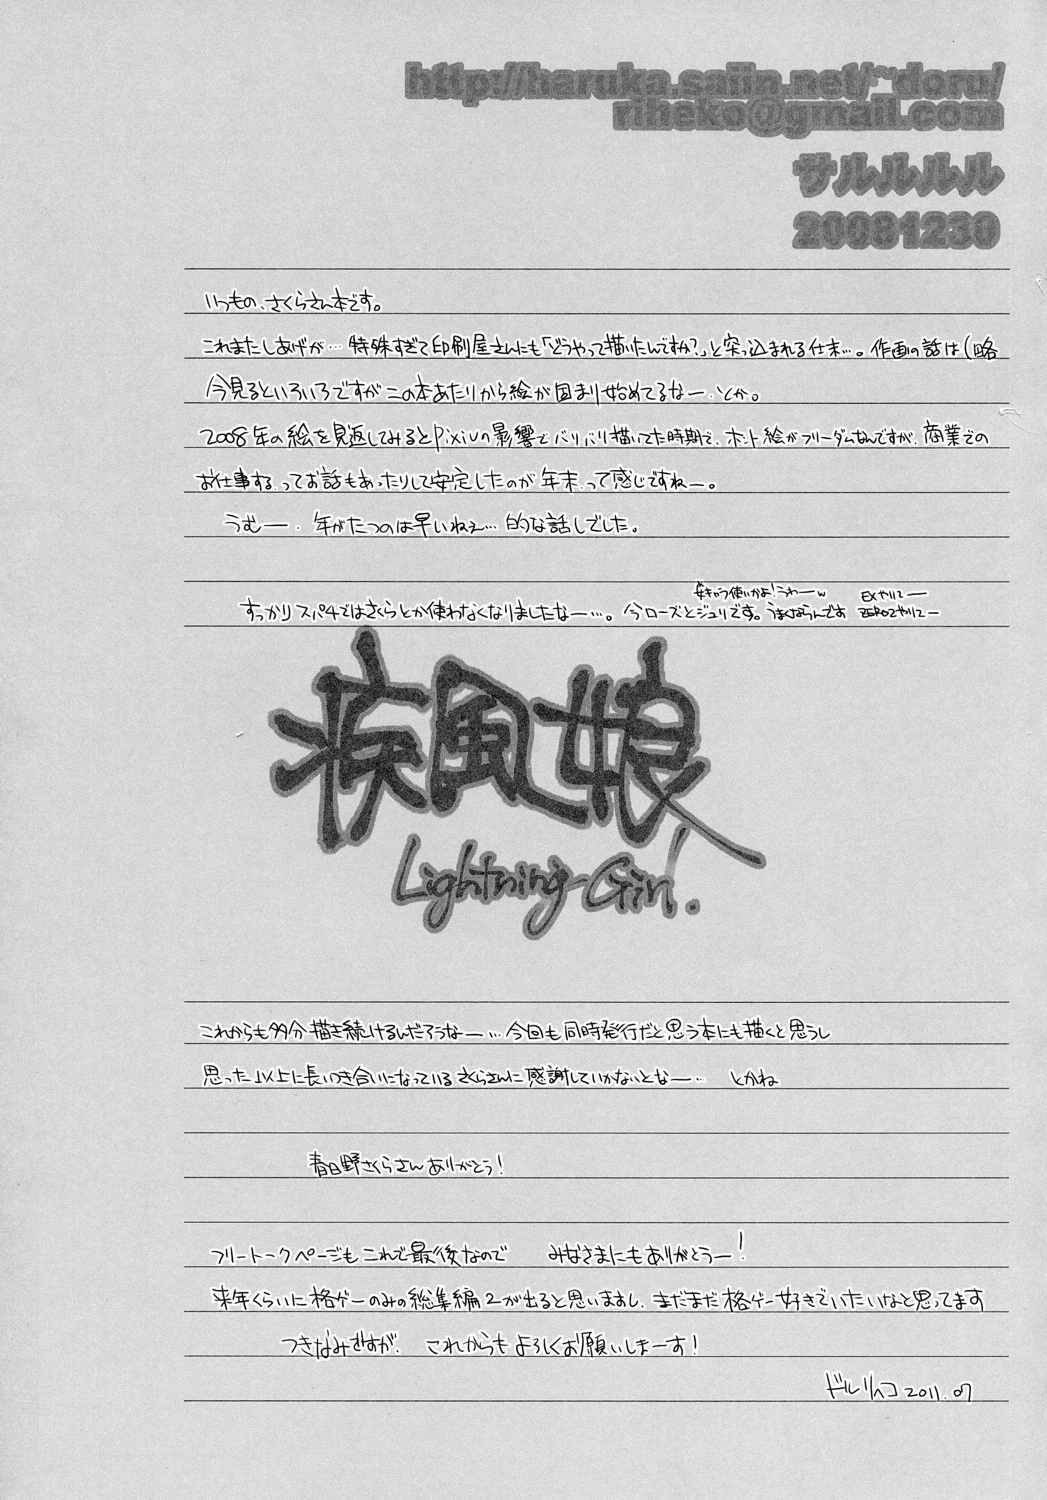 http://haruka.saiin.net/~doru/
riheko@gmail.com
サルルルル
20081230
いつもの、さくらさん本です。
これまたしあげが…特殊すぎて印刷屋さんにも「どうやって描いたんですか?」と突っ込まれる仕末…。作画の話は(略
今見るといろいろですがこの本あたりから絵が固まり始めてるなー、とか。
2008年の絵を見返してみるとpixivの影響でバリバリ描いてた時期で、ホント絵がフリーダムなんですが、商業での
お仕事する、ってお話もあったりして安定したのが年末、って感じですねー。
うむー、年がたつのは早いねぇ…的な話しでした。
女キャラ使いかよ!こわーw
EXやりてー
すっかりスパ4ではさくらとか使わなくなりましたなー…。今ローズとジュリです。うまくならんです
ZERO2やりてー
疾風娘
Lightning-Girl.
これからも多分描き続けるんだろうなー…今回も同時発行だと思う本にも描くと思うし
思った以上に長いつき合いになっているさくらさんに感謝していかないとなー… とかね
春日野さくらさんありがとう!
フリートークページもこれで最後なので みなさまにもありがとうー!
来年くらいに格ゲーのみの総集編2が出ると思いますし、まだまだ格ゲー好きでいたいなと思ってます
つきなみですが、これからもよろしくお願いしまーす!
ドルリヘコ 2011.07